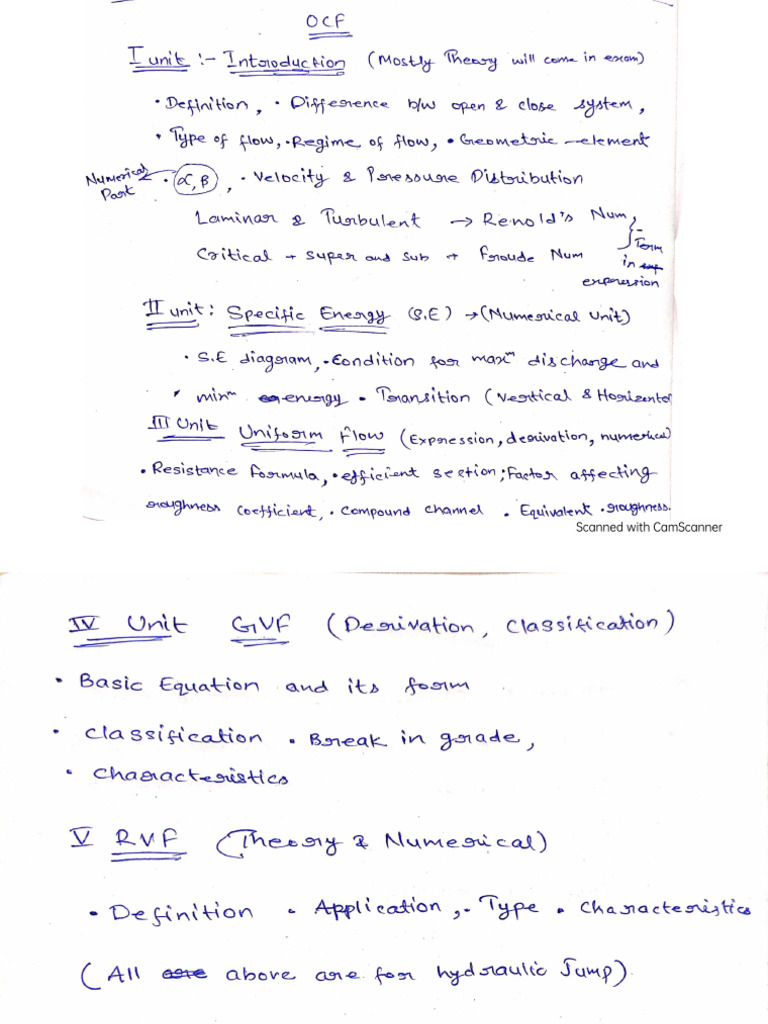 OCF
I unit :- Introduction (Mostly Theory will come in exam)
• Definition, • Difference b/w open & close system,
• Type of flow, • Regime of flow, • Geometric - element
Numerical Part • α, β, • Velocity & Pressure Distribution
Laminar & Turbulent → Renold's Num,
Critical + super and sub + froude Num
Term in expression
II unit: Specific Energy (S.E) → (Numerical Unit)
• S.E diagram, • Condition for maxm discharge and
minm energy • Transition (Vertical & Horizontal
III Unit Uniform Flow (Expression, derivation, numerical)
• Resistance formula, • efficient section; Factor affecting
roughness coefficient, • Compound channel • Equivalent • roughness.
Scanned with CamScanner
IV Unit GVF (Derivation, Classification)
• Basic Equation and its form
• Classification • Break in grade,
• Characteristics
V RVF (Theory & Numerical)
• Definition • Application, • Type • Characteristics
(All above are for hydraulic Jump)